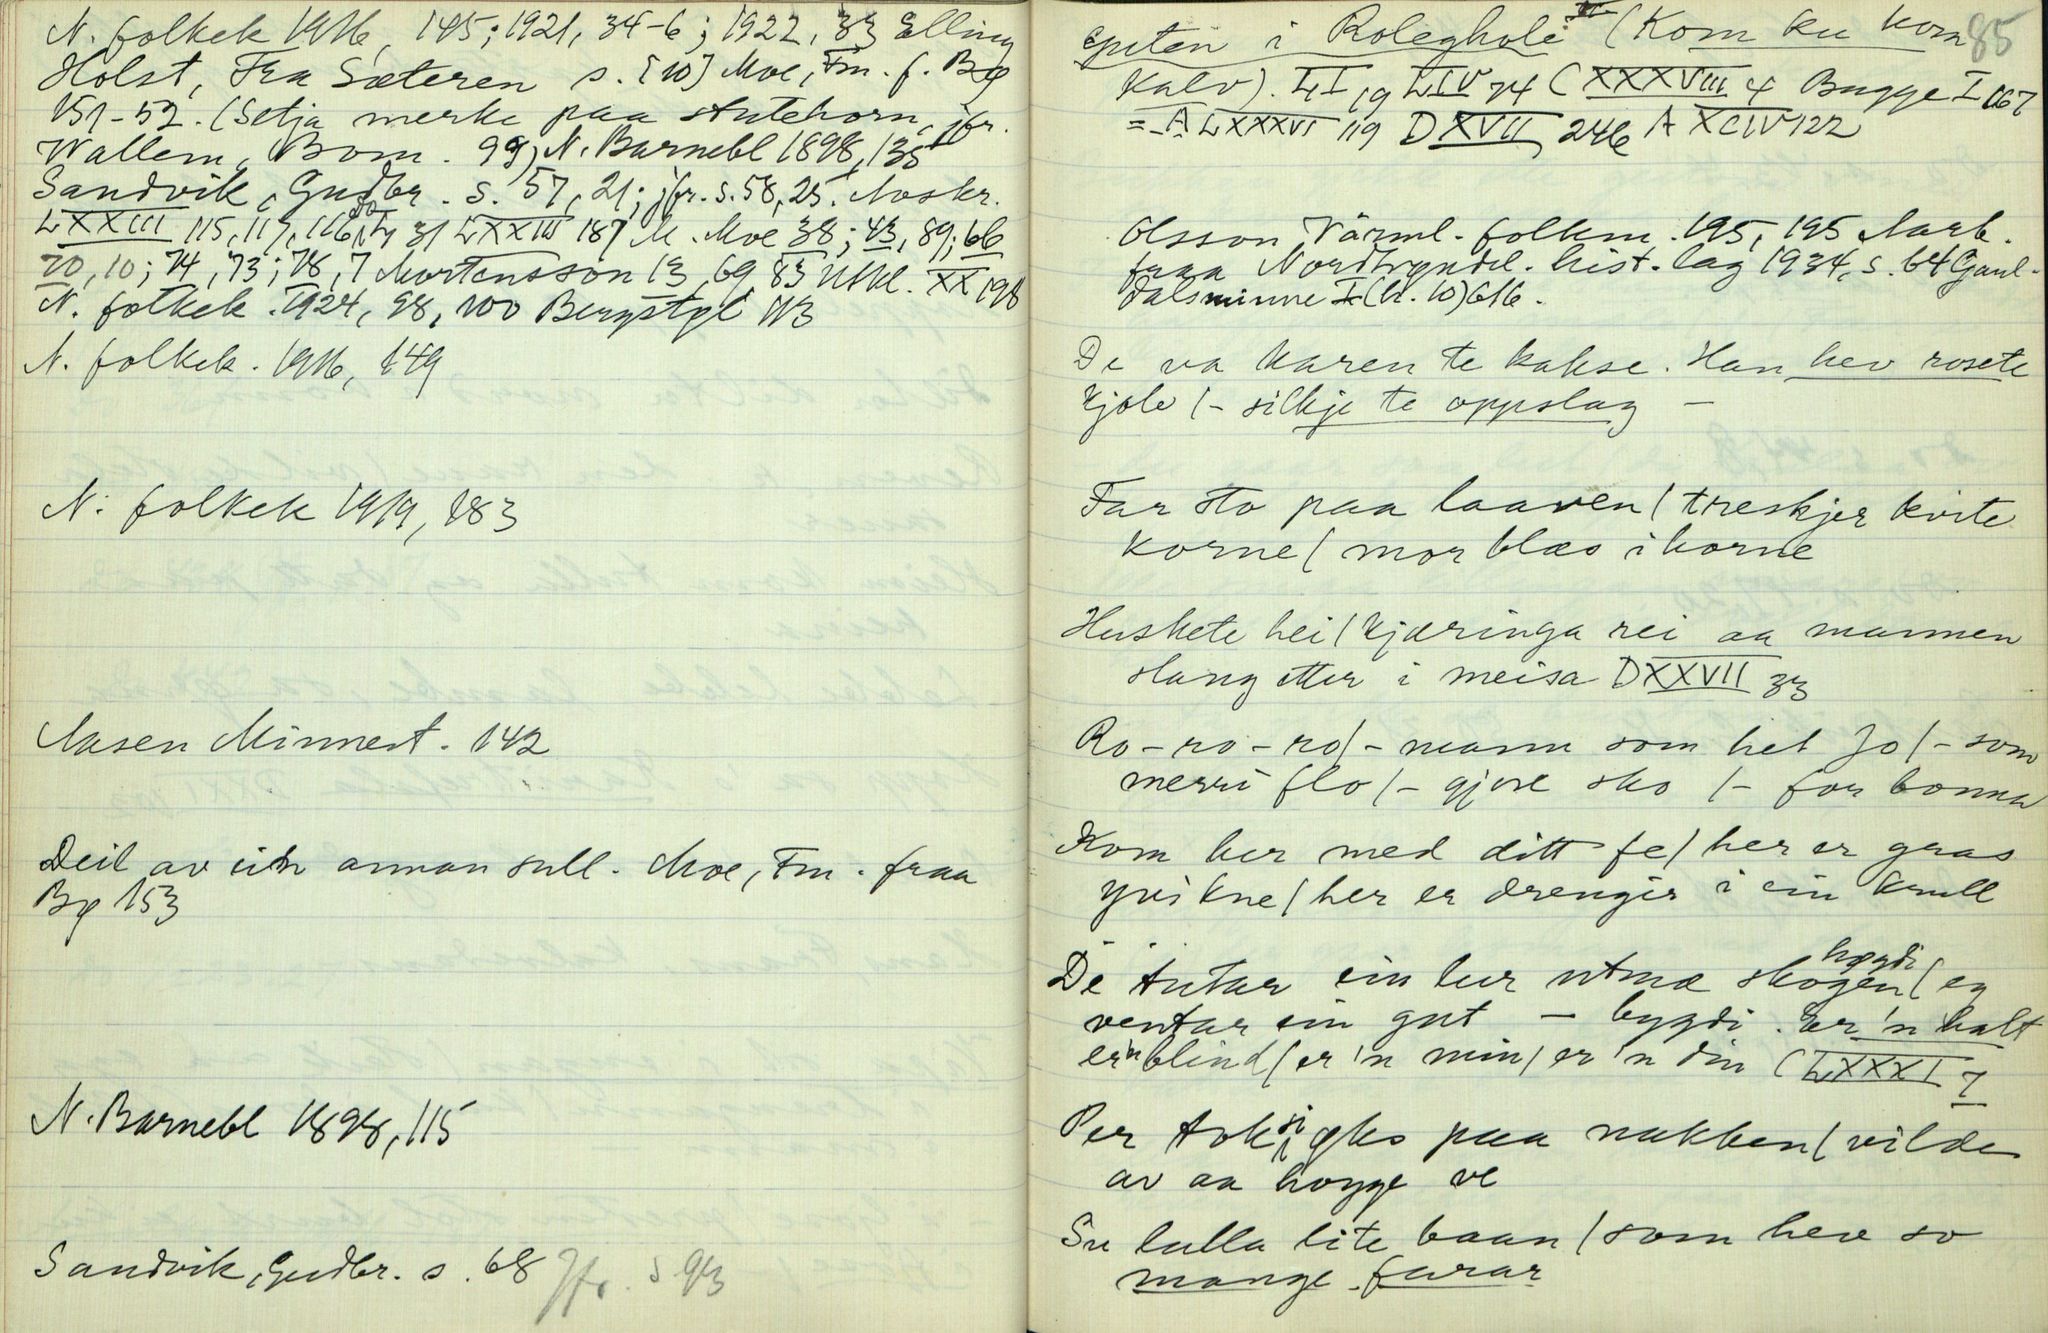 N. folkek 1916, 145; 1921, 34-6; 1922, 33 Elling
Holst, Fra Sæteren s. [10] Moe, Fm. f. Bø
151-52. (Setja merke paa Autehorn, jfr.
Wallem, Bom. 99) N. Barnebl 1898, 135
Sandvik, Gudbr. s. 57, 21; jfr. s. 58, 25. Noskr.
LXXIII 115, 117, 116, 31 LXXIII 187 M. Moe 38; 43, 89; 66
70, 10; 74, 73; 78, 7 Mortensson 13, 69, 83 XX 198
N. folkek. 1924, 98, 100 Bergstøl 113
N. folkek. 1916, 149
N. folkek 1919, 183
Aasen Minnest. 142
Deil av ein annan sull. Moe, Fm. fraa
Bø 153
N. Barnebl 1898, 115
Sandvik, Gudbr. s. 68 Jfr. s 93
85
guten i Roleghole (Kom ku kom
kalv). LI 19 LIV 74 (XXXVIII 4 Bugge I 167
= A LXXXVI 119 D XVII 246 A XCIV 122
Olsson Värml. folkm. 195, 195 Aarb.
fraa Nordhyndel. hist. lag 1934, s. 64 Gaul-
dalsminne I (h. 10) 616.
De va Karen te kakse. Han hev rosete
kjole / - silkje te oppslag -
Far sto paa laaven / treskjer kvite
korne / mor blæs i horne
Huskete hei / kjæringa rei aa mannen
slang etter i meisa DXXVII 33
Ro-ro-ro / - mann som het Jo / - som
merri flo / - gjore sko / - for bonna
Kom her med ditt fe / her er gras
yvi kne / her er drengir i ein krull
høgdi
De tutar ein lur utmæ skogen / eg
ventar ein gut - bygdi. Er'n halt
er'n blind / er'n min / er'n din (LXXXI 7
Per tok si øks paa nakken / vilde
av aa hogge ve
Su lulla lite baan / som heve so
mange farar